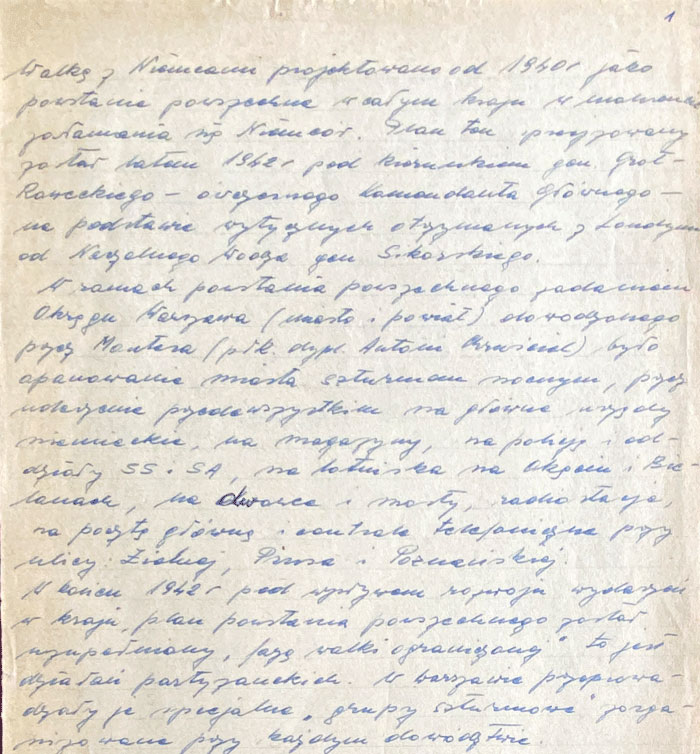 1
Walkę z Niemcami projektowano od 1940r jako
powstanie powszechne w całym kraju w momencie
załamania się Niemców. Plan ten sprecyzowany
został latem 1942r pod kierunkiem gen. Grot-
Roweckiego – ówczesnego Komendanta Głównego –
na podstawie wytycznych otrzymanych z Londynu
od Naczelnego Wodza gen Sikorskiego.
W ramach powstania powszechnego zadaniem
Okręgu Warszawa (miasto i powiat) dowodzonego
przez Montera (płk. dypl. Antoni Chruściel) było
opanowanie miasta szturmem nocnym, przy
uderzeniu przedewszystkim na główne urzędy
niemieckie, na magazyny, na policję i od-
działy SS i SA, na lotniska na Okęciu i Bie-
lanach, na dworce i mosty, radiostację,
na pocztę główną i centrale telefoniczne przy
ulicy: Zielnej, Piusa i Poznańskiej.
W końcu 1942r pod wpływem rozwoju wydarzeń
w kraju, plan powstania powszechnego został
uzupełniony „fazą walki ograniczonej" to jest
działań partyzanckich. W Warszawie przeprowa-
dzały je specjalne „grupy szturmowe" zorga-
nizowane przy każdym dowództwie.